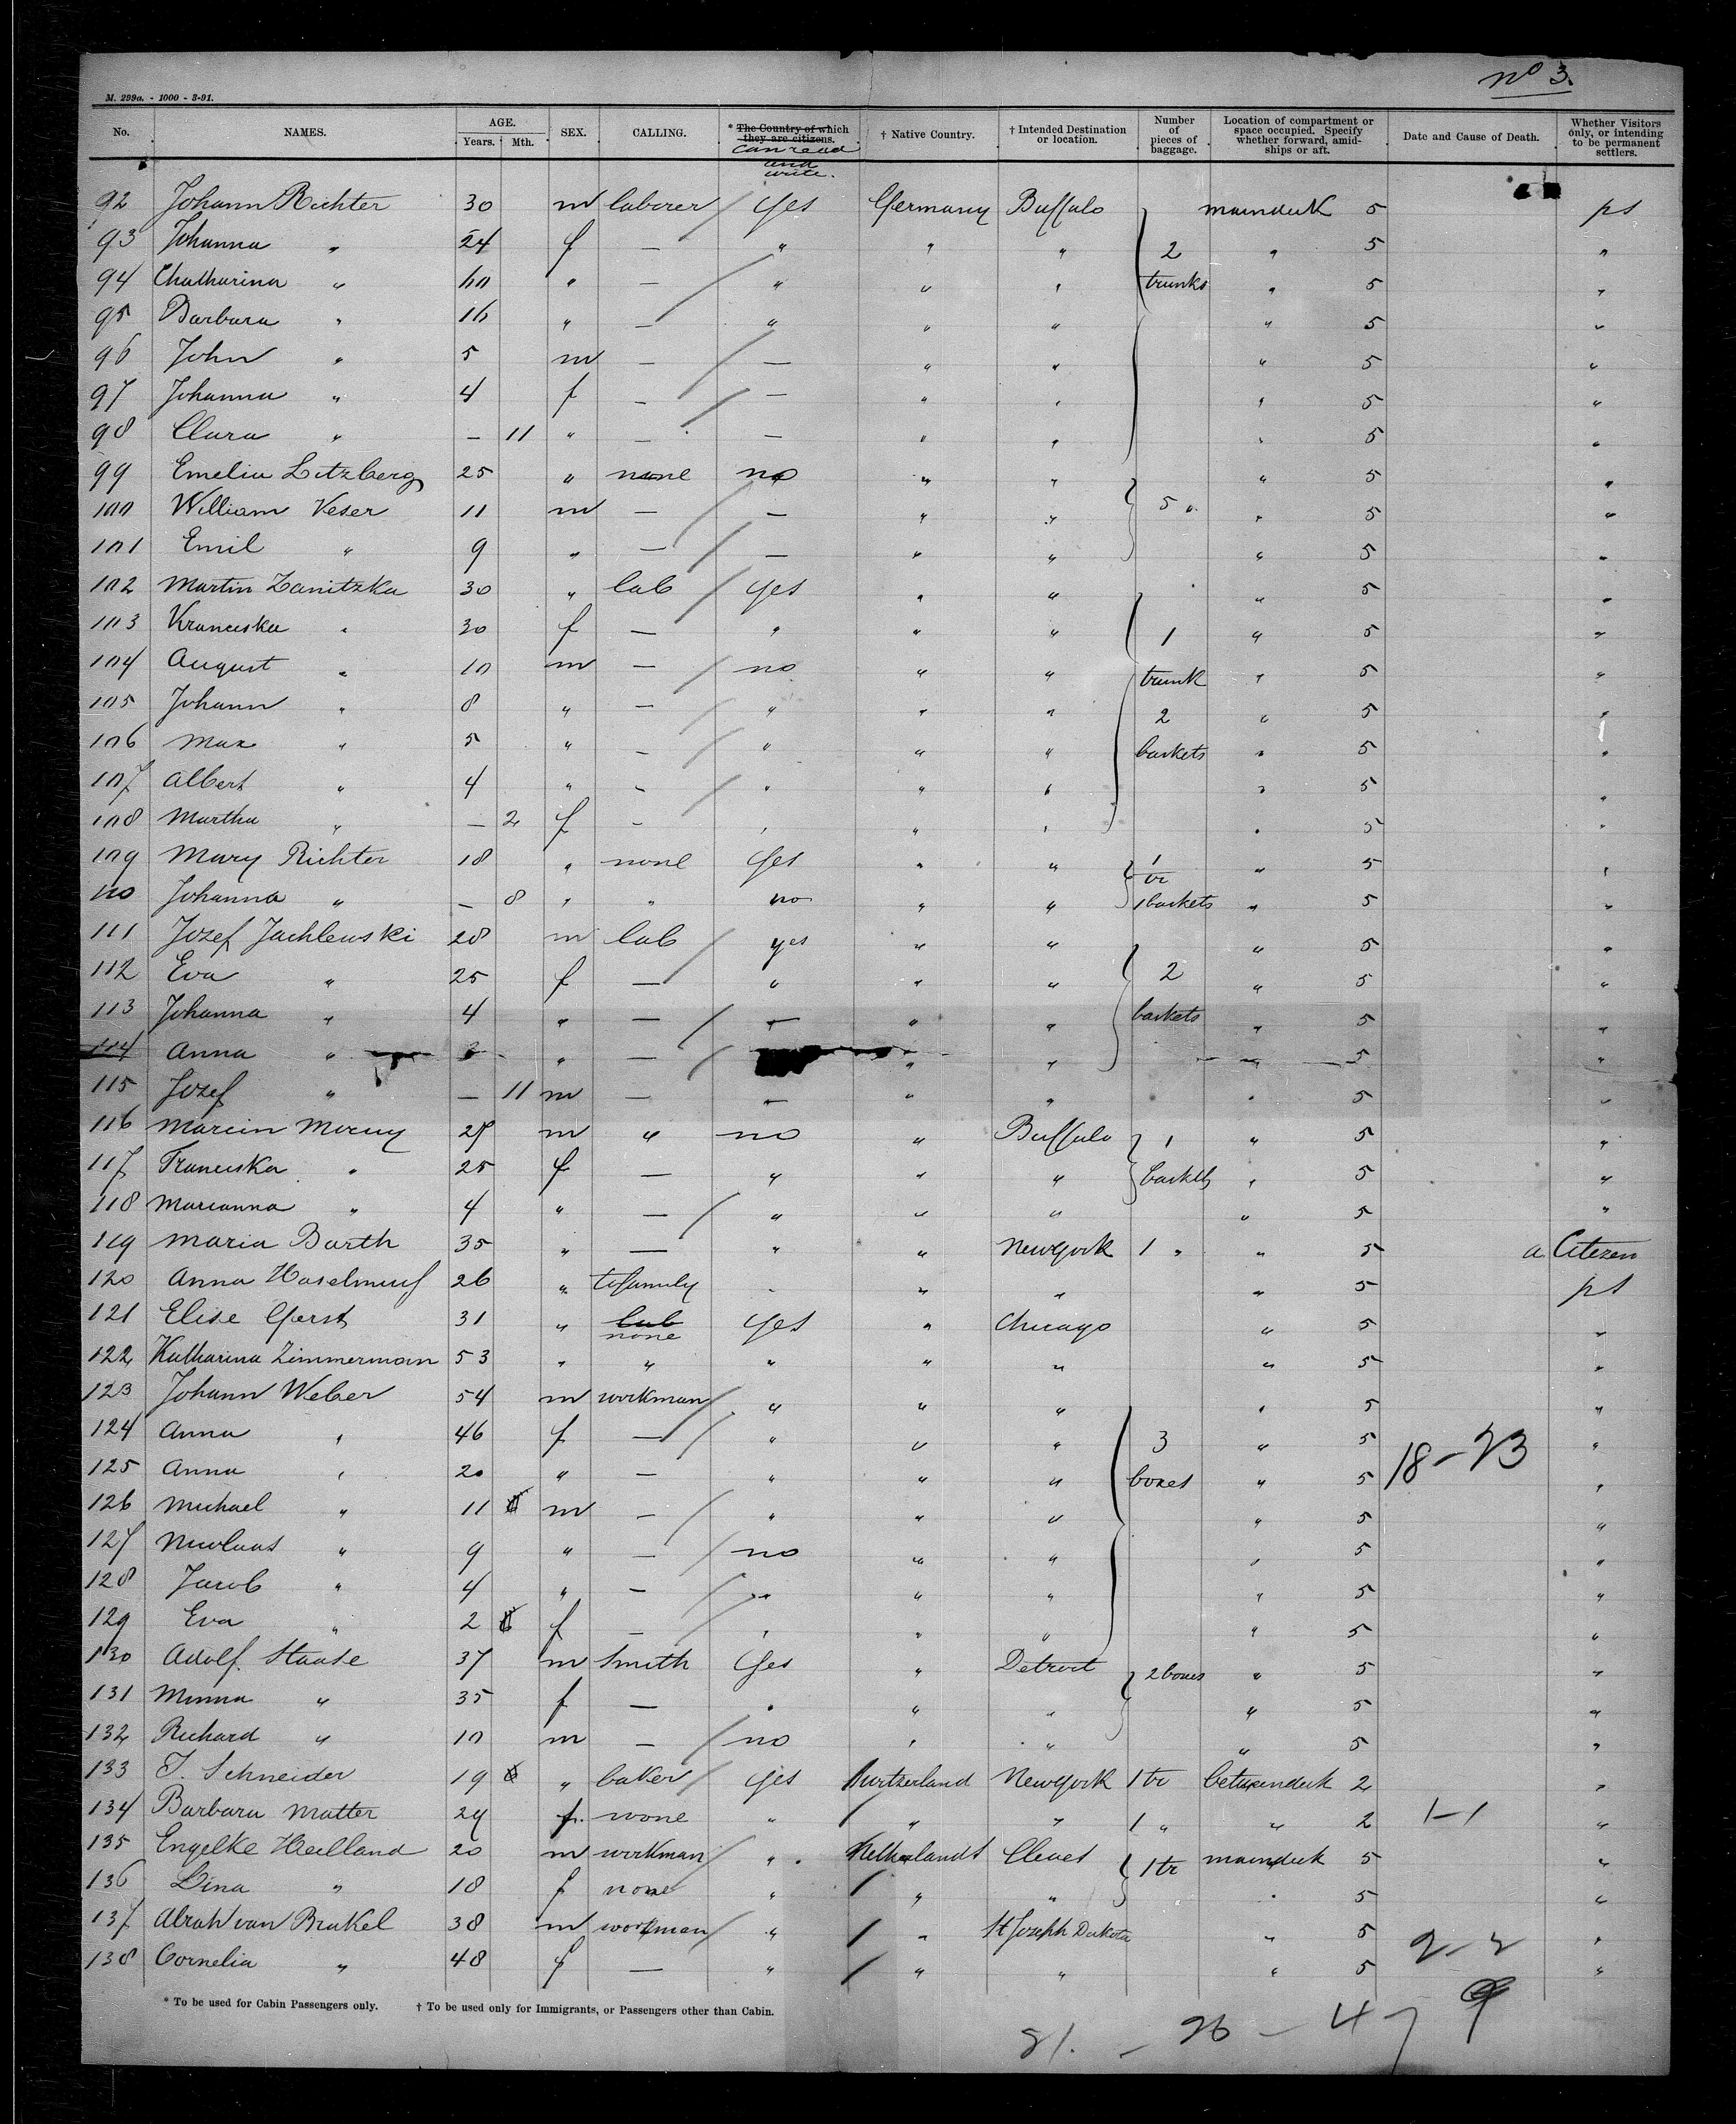 nº 3.
M. 299a. - 1000 - 3-91.
No. NAMES. AGE. Years. Mth. SEX. CALLING. * The Country of which they are citizens. can read and write. † Native Country. † Intended Destination or location. Number of pieces of baggage. Location of compartment or space occupied. Specify whether forward, amidships or aft. Date and Cause of Death. Whether Visitors only, or intending to be permanent settlers.
92 Johann Richter 30 m laborer / yes Germany Buffalo maindeck 5 ps
93 Johanna " 24 f — " " " 2 " 5 "
94 Chatharina " 60 " — / " " " trunks " 5 "
95 Barbara " 16 " — " " " " 5 "
96 John " 5 m — / — " " " 5 "
97 Johanna " 4 f — / — " " " 5 "
98 Clara " — 11 " — — " " " 5 "
99 Emelia Litzberg 25 " none no " " " 5 "
100 William Keser 11 m — / — " " 5 " " 5 "
101 Emil " 9 " — / — " " " 5 "
102 Martin Zanitzka 30 " lab / yes " " " 5 "
103 Kranciska " 30 f — " " " 1 " 5 "
104 August " 10 m — / no " " trunk " 5 "
105 Johann " 8 " — / " " " 2 " 5 "
106 Max " 5 " — / " " " baskets " 5 "
107 Albert " 4 " — / " " " " 5 "
108 Martha " — 2 f — " " " " 5 "
109 Mary Richter 18 " none yes " " 1 tr " 5 "
110 Johanna " — 8 " " no " " 1 baskets " 5 "
111 Jozef Jachlewski 28 m lab / yes " " " 5 "
112 Eva " 25 f — / " " " 2 " 5 "
113 Johanna " 4 " — / — " " baskets " 5 "
114 Anna " " — / " " " 5 "
115 Jozef " — 11 m — — " " " 5 "
116 Marcin 27 m " no " Buffalo 1 " 5 "
117 Franciska " 25 f — " " " baskets " 5 "
118 Marianna " 4 " — / " " " " 5 "
119 Maria Barth 35 " — " " New York 1 " " 5 a Citezen
120 Anna 26 " to family " " " " 5 ps
121 Elise Gerst 31 " lab none yes " Chicago " 5 "
122 Katharina Zimmermann 53 " " " " " " 5 "
123 Johann Weber 54 m workman / " " " " 5 "
124 Anna " 46 f — / " " " 3 " 5 18-23 "
125 Anna " 20 " — " " " boxes " 5 "
126 Michael " 11 m — / " " " " 5 "
127 Nicolaus " 9 " — / no " " " 5 "
128 Jacob " 4 " — / " " " " 5 "
129 Eva " 2 f — / " " " " 5 "
130 Adolf Staase 37 m Smith yes " Detroit 2 boxes " 5 "
131 Minna " 35 f — " " " " 5 "
132 Richard " 10 m — / no " " " 5 "
133 J. Schneider 19 " baker / yes Switzerland New York 1 tr betweendeck 2 "
134 Barbara Matter 24 f. none " " " 1 " " 2 1-1 "
135 Engelke Heilland 20 m workman / " Netherlands Cleves 1 tr maindeck 5 "
136 Lina " 18 f none " " " " 5 "
137 Abrah van Brakel 38 m workman / " " St Joseph Dakota " 5 "
138 Cornelia " 48 f — " " " " 5 2-2 "
* To be used for Cabin Passengers only. † To be used only for Immigrants, or Passengers other than Cabin.
21. — 26 — 47 9